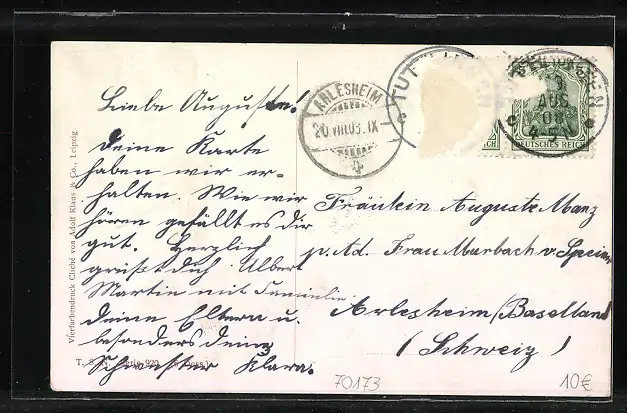 Liebe Auguste!
Deine Karte
haben wir er-
halten. Wie wir
hören gefällt es dir
gut. Herzlich
grüßt dich Albert
Martin mit Familie
deine Eltern u.
besonders deine
Schwester Klara.
Vierfarbendruck Cliché von Adolf Klaus & Co., Leipzig
T. S. N. Serie 920
ARLESHEIM
20 VIII.08. IX
TUTTLINGEN
TUTTLINGEN
AUG
08
4-5
DEUTSCHES REICH
ICH
Fräulein Auguste Manz
p. Ad. Frau Murbach v. Speiser
Arlesheim/Baselland
(Schweiz)
70173
10€